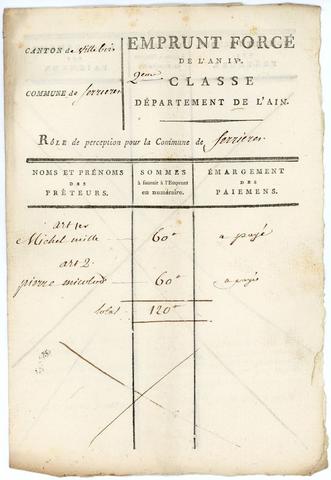 CANTON de Ville bois
COMMUNE de Serrieres
EMPRUNT FORCÉ
DE L'AN IVe.
2eme
CLASSE
DÉPARTEMENT DE L'AIN.
RÔLE de perception pour la Commune de Serrieres
NOMS ET PRÉNOMS
DES
PRÊTEURS.
SOMMES
à fournir à l'Emprunt
en numéraire.
ÉMARGEMENT
DES
PAIEMENS.
art 1er
Michel mille 60# a payé
art 2.
pierre 60# a payé
total 120#